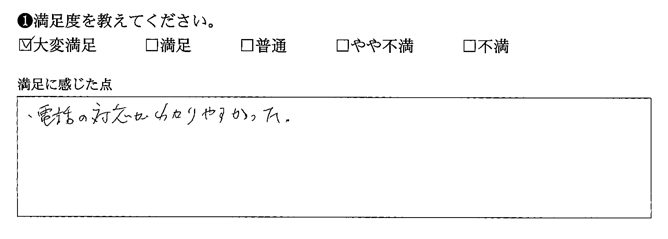 ❶満足度を教えてください。
☑大変満足 □満足 □普通 □やや不満 □不満
満足に感じた点
、電話の対応がわかりやすかった。